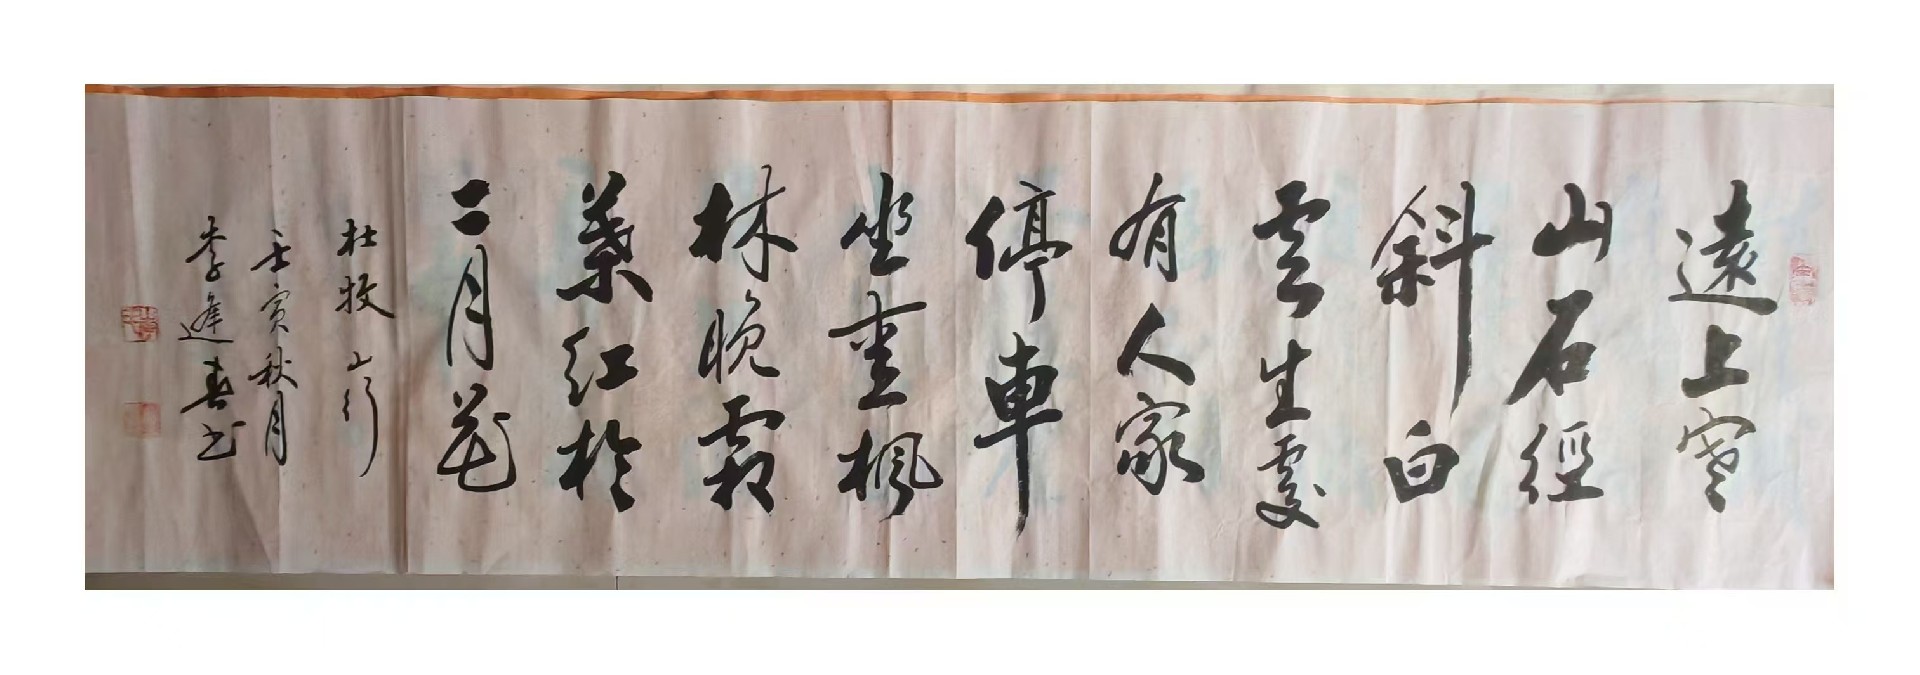 遠上寒
山石徑
斜白
雲生處
有人家
停車
坐重楓
林晚霜
葉紅於
二月花
杜牧 山行
壬寅秋月
李逢春书